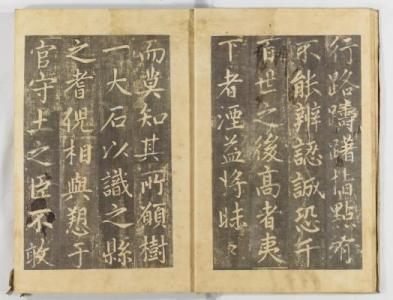 行路躊躇指點有
不能辨認誠恐千
百世之後高者夷
下者湮益將昧々
而莫知其所願樹
一大石以識之縣
之耆倪相與懇于
官守土之臣不敢